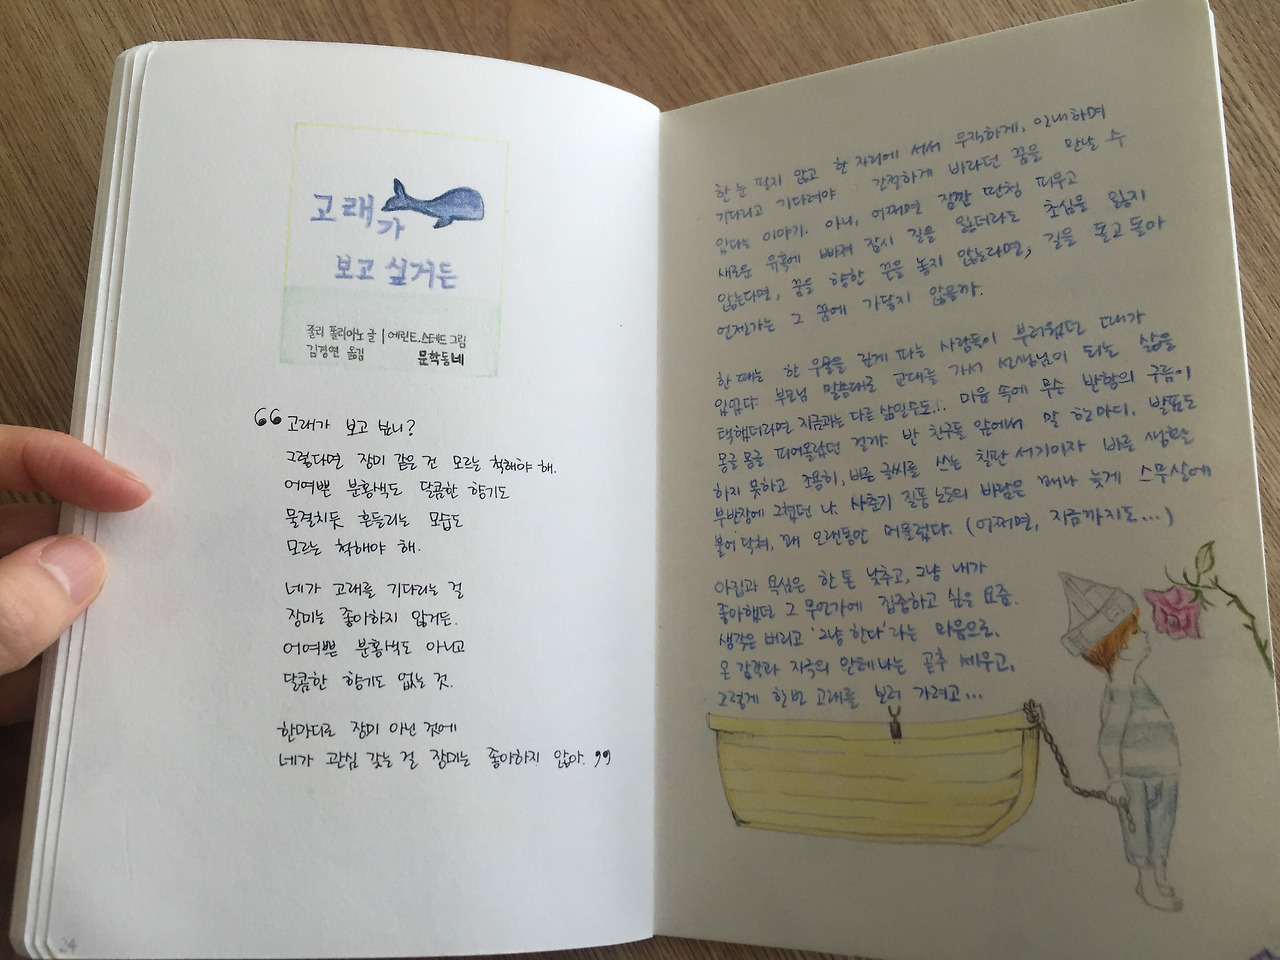 고래가
보고 싶거든
줄리 폴리아노 글 | 에린 E. 스테드 그림
김경연 옮김
문학동네
“고래가 보고 싶니?
그렇다면 장미 같은 건 모르는 척해야 해.
어여쁜 분홍색도 달콤한 향기도
물결치듯 흔들리는 모습도
모르는 척해야 해.
네가 고래를 기다리는 걸
장미는 좋아하지 않거든.
어여쁜 분홍색도 아니고
달콤한 향기도 없는 것.
한마디로 장미 아닌 것에
네가 관심 갖는 걸 장미는 좋아하지 않아.”
24
한 눈 팔지 않고 한 자리에 서서 우직하게, 인내하며
기다리고 기다려야 간절하게 바라던 꿈을 만날 수
있다는 이야기. 아니, 어쩌면 잠깐 딴청 피우고
새로운 유혹에 빠져 잠시 길을 잃더라도 초심을 잃지
않는다면, 꿈을 향한 끈을 놓지 않는다면, 길을 돌고 돌아
언젠가는 그 꿈에 가닿지 않을까.
한 때는 한 우물을 깊게 파는 사람들이 부러웠던 때가
있었다. 부모님 말씀대로 교대를 가서 선생님이 되는 삶을
택했더라면 지금과는 다른 삶일수도... 마음 속에 무슨 반항의 구름이
몽글몽글 피어올랐던 걸까. 반 친구들 앞에서 말 한마디, 발표도
하지 못하고 조용히, 바른 글씨를 쓰는 칠판 서기이자 바른 생활
부반장에 그쳤던 나. 사춘기 질풍노도의 바람은 꽤나 늦게 스무살에
불어 닥쳐, 꽤 오랜동안 머물렀다. (어쩌면, 지금까지도...)
아집과 욕심은 한 톤 낮추고, 그냥 내가
좋아했던 그 무언가에 집중하고 싶은 요즘.
생각은 버리고 '그냥 한다'라는 마음으로.
온 감각과 자극의 안테나는 곧추 세우고,
그렇게 한번 고래를 보러 가려고...